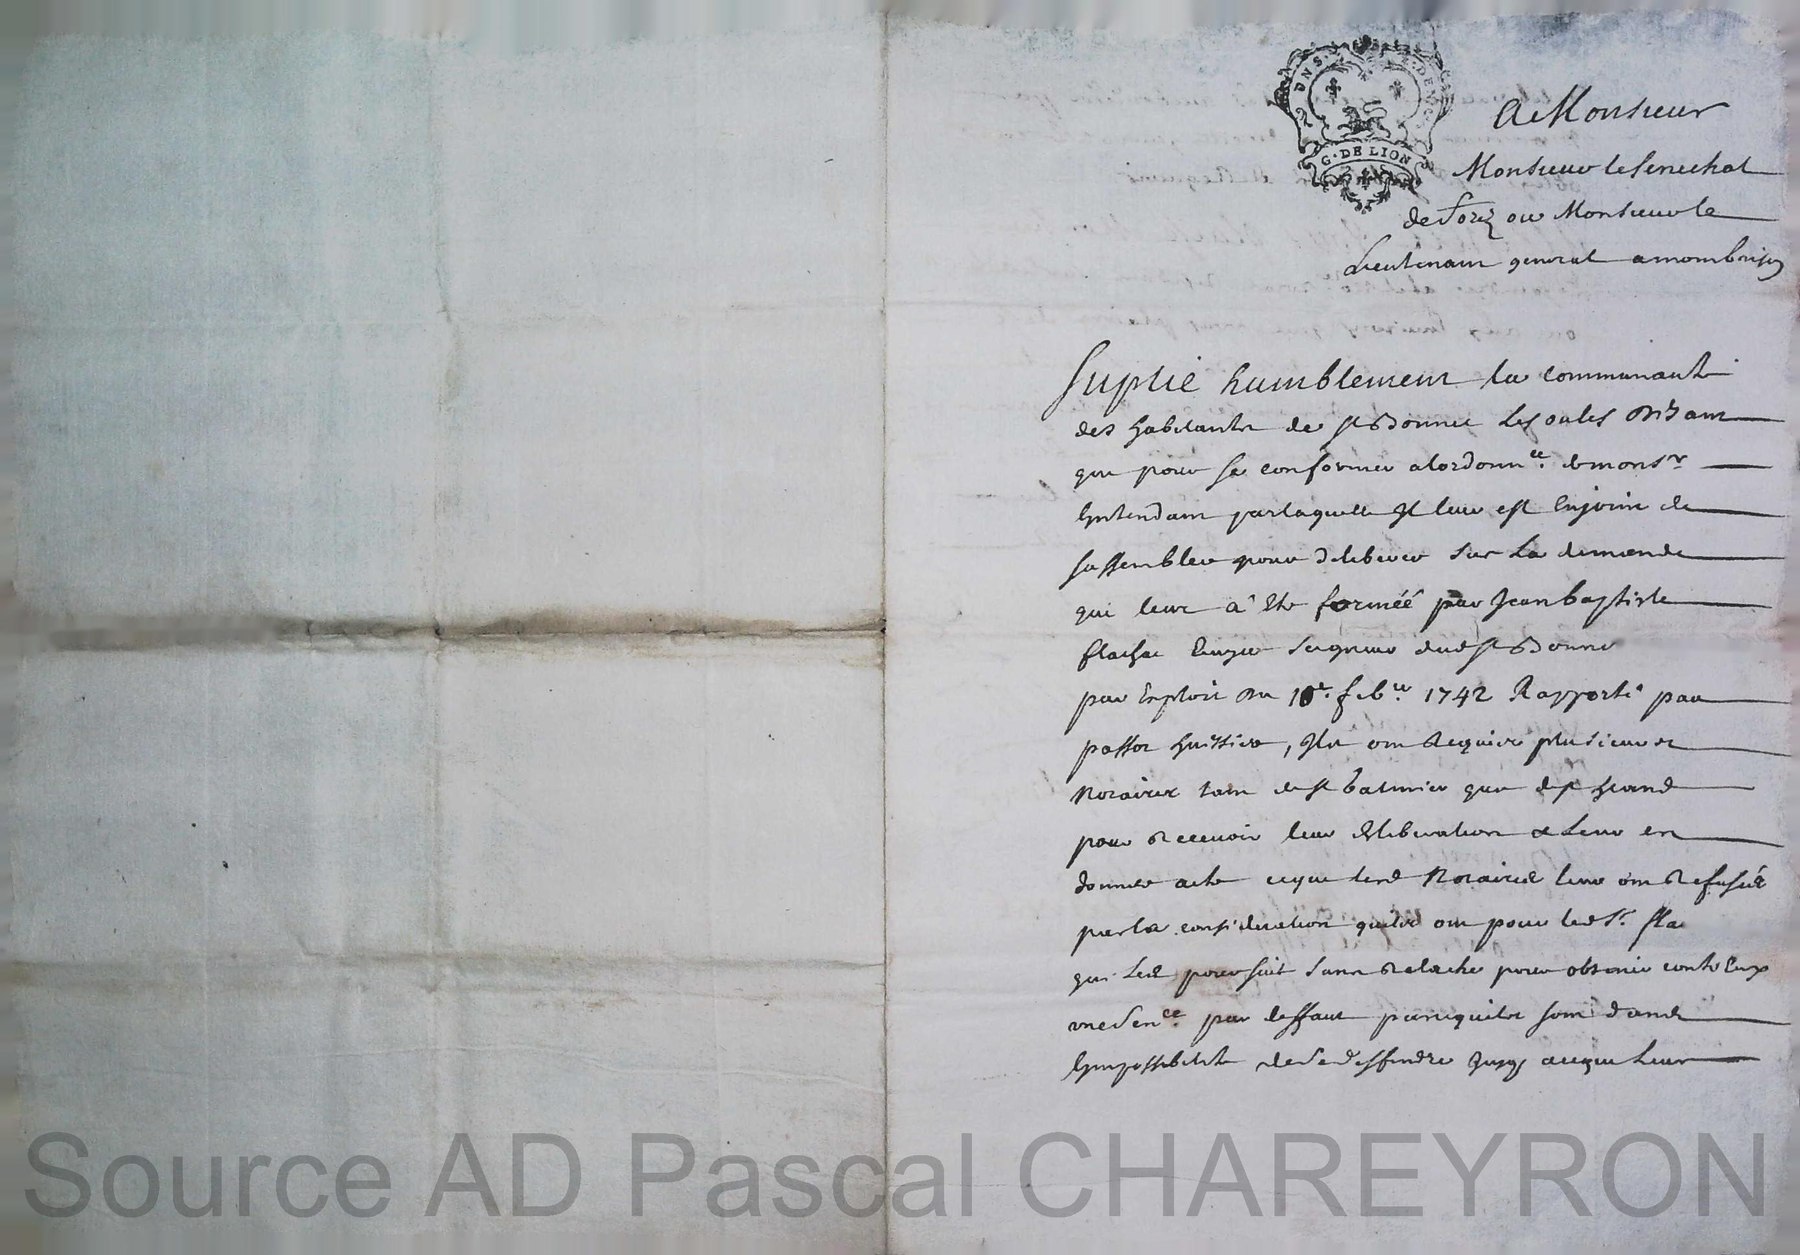 G. DE LION
A Monsieur
Monsieur le senechal
de forez ou Monsieur le
Lieutenant general a mombrison
Suplie humblement la communauté
des habitants de st Bonnet Les oules disant
que pour se conformer a lordonnce. de monsr
Intendant par laquelle Il leur est Enjoint de
sassembler pour deliberer sur La demande
qui leur a été formée par Jean baptiste
flachat Ecuyer seigneur dud st Bonnet
par Exploit du 10e. feber. 1742 Rapporté par
huissier, Ils ont Requis plusieurs
Notaires tant de st Galmier que de st heand
pour Recevoir leur deliberation & Leur en
donner acte ceque lesd Notaires leur ont Refusés
par la consideration quils ont pour led sr. fla
qui Les poursuit sans Relache pour obtenir contr Eux
une sence. par deffaut parcequils sont dans
Limpossibilité de se deffendre Jusqs aceque Leur
Source AD Pascal CHAREYRON